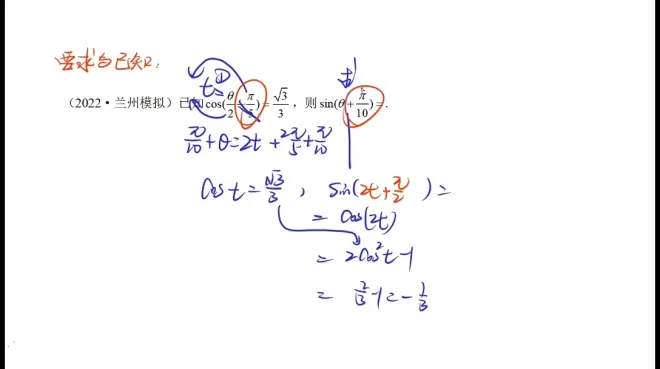 要求与已知:
t= ①
(2022·兰州模拟)已知cos(θ/2-π/5)=√3/3,则sin(θ+π/10)=.
π/10+θ=2t+2π/5+π/10
cos t=√3/3, sin(2t+π/2)=
=cos(2t)
=2cos²t-1
=2/3-1=-1/3